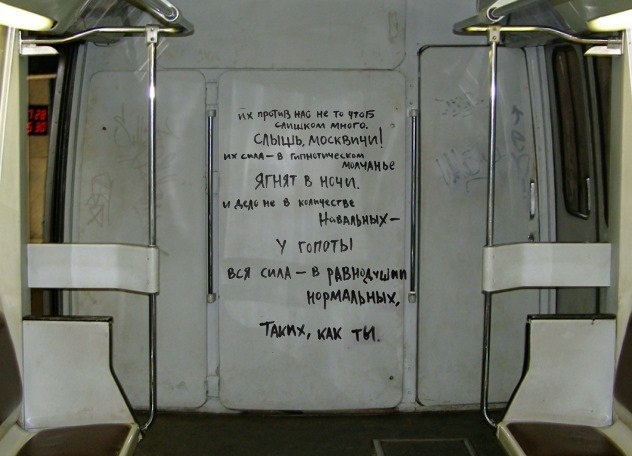 их против нас не то чтоб
слишком много.
слышь, москвичи!
их сила – в гипнотическом
молчанье
ягнят в ночи.
и дело не в количестве
Навальных –
у гопоты
вся сила – в равнодушии
нормальных,
таких, как ты.